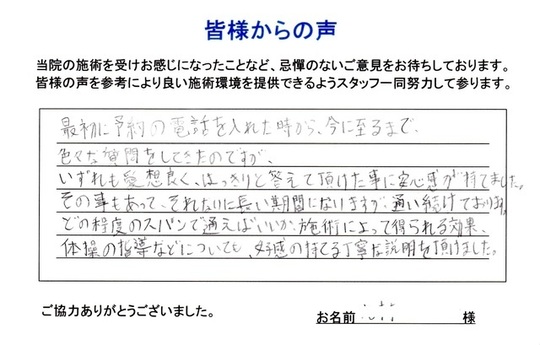 皆様からの声
当院の施術を受けお感じになったことなど、忌憚のないご意見をお待ちしております。
皆様の声を参考により良い施術環境を提供できるようスタッフ一同努力して参ります。
最初に予約の電話を入れた時から、今に至るまで、
色々な質問をしてきたのですが、
いずれも愛想良く、はっきりと答えて頂けた事に安心感が持てました。
その事もあって、それなりに長い期間にないますが、通い続けております。
どの程度のスパンで通えばいいか、施術によって得られる効果、
体操の指導などについても、好感の持てる丁寧な説明を頂けました。
ご協力ありがとうございました。
お名前 様